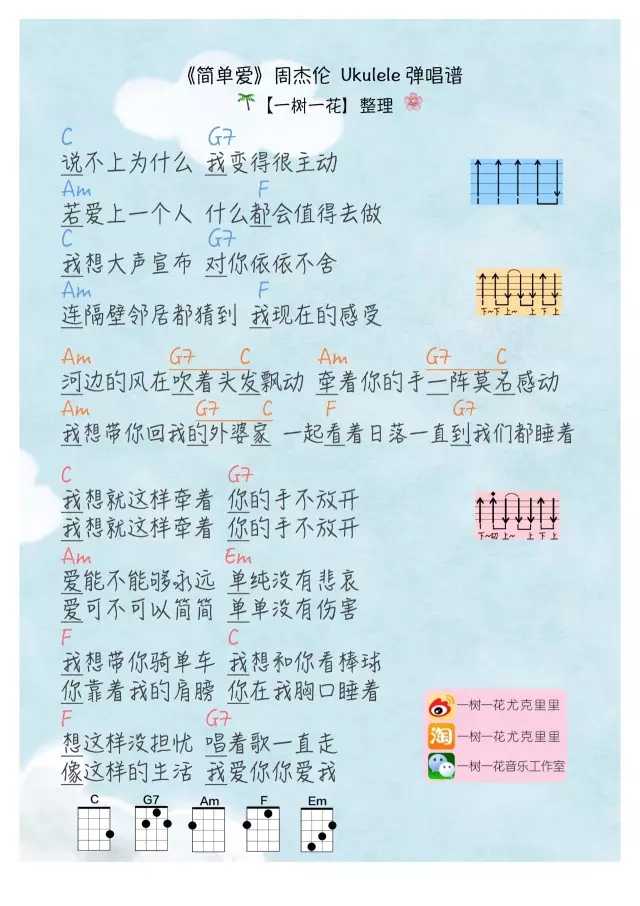 《简单爱》周杰伦 Ukulele 弹唱谱
【一树一花】整理
C G7
说不上为什么 我变得很主动
Am F
若爱上一个人 什么都会值得去做
C G7
我想大声宣布 对你依依不舍
Am F
连隔壁邻居都猜到 我现在的感受
下~下 上~ 上 下 上
Am G7 C Am G7 C
河边的风在吹着头发飘动 牵着你的手一阵莫名感动
Am G7 C F G7
我想带你回我的外婆家 一起看着日落一直到我们都睡着
C G7
我想就这样牵着 你的手不放开
我想就这样牵着 你的手不放开
下~切 上~ 上 下 上
Am Em
爱能不能够永远 单纯没有悲哀
爱可不可以简简 单单没有伤害
F C
我想带你骑单车 我想和你看棒球
你靠着我的肩膀 你在我胸口睡着
F G7
想这样没担忧 唱着歌一直走
像这样的生活 我爱你你爱我
一树一花尤克里里
淘 一树一花尤克里里
一树一花音乐工作室
C G7 Am F Em